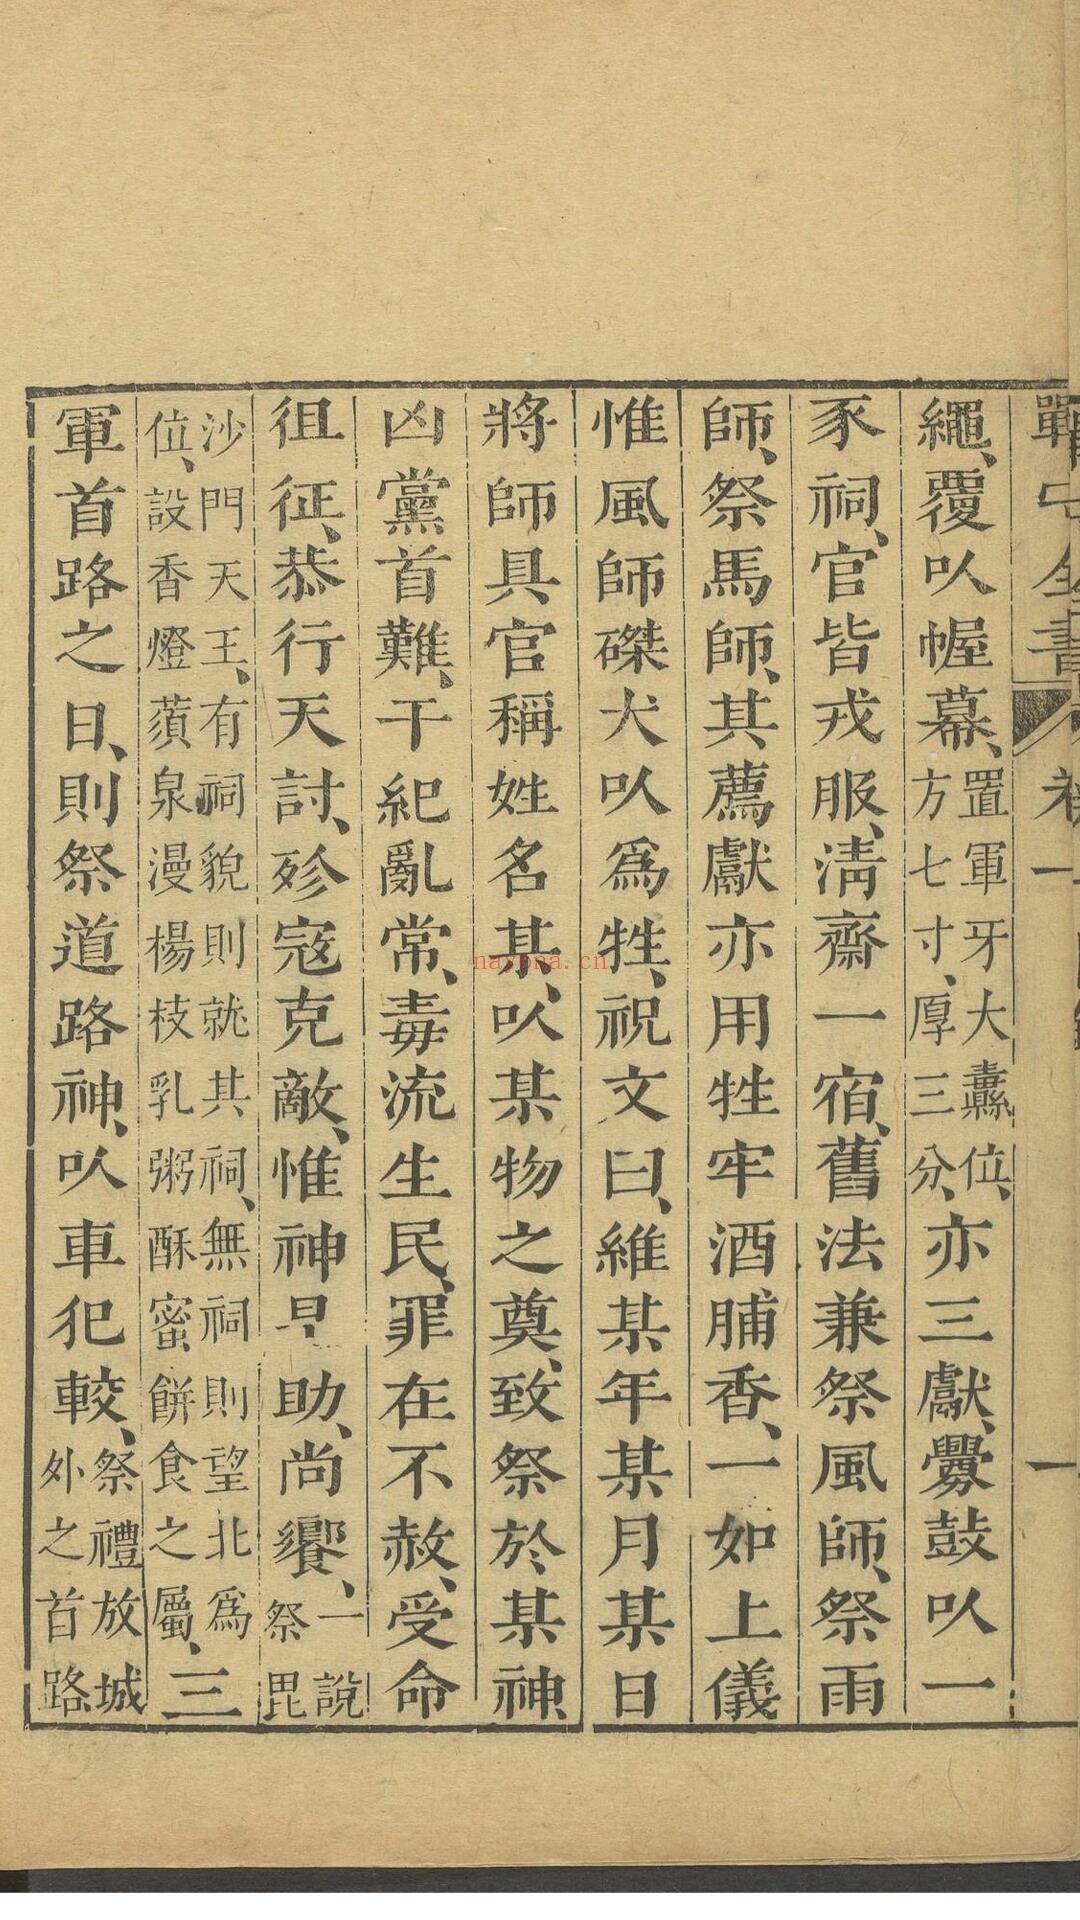 戰守全書 卷一 一
繩、覆㕥幄幕、置軍牙大纛位、方七寸、厚三分、亦三獻、釁鼓㕥一
豕祠、官皆戎服、清齋一宿、舊法兼祭風師、祭雨
師、祭馬師、其薦獻亦用牲牢酒脯香、一如上儀
惟風師磔犬㕥爲牲、祝文曰、維某年某月某日
將師具官稱姓名某、㕥某物之奠、致祭於某神
凶黨首難、干紀亂常、毒流生民、罪在不赦、受命
徂征、恭行天討、殄寇克敵、惟神早助、尚饗、一說祭毘
沙門天王、有祠貌則就其祠、無祠則望北爲位、設香燈蘋泉漫楊枝乳粥酥蜜餅食之屬、三
軍首路之日、則祭道路神、㕥車犯較、祭禮放城外之首路
nayona.cn